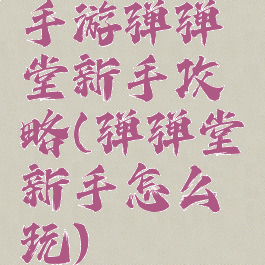 手游弹弹
堂新手攻
略(弹弹堂
新手怎么
玩)